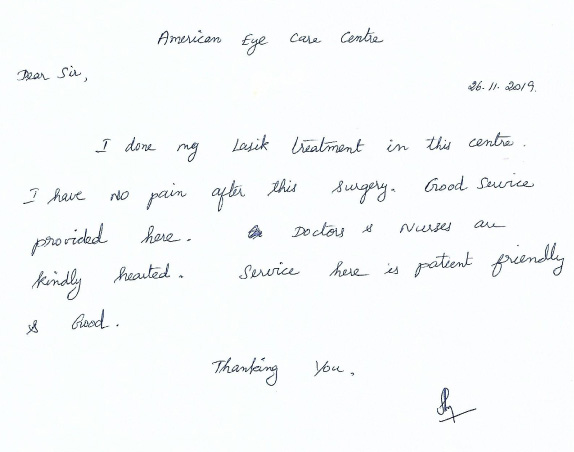 American Eye Care Centre
Dear Sir,
26.11.2019.
I done my Lasik treatment in this centre.
I have no pain after this surgery. Good Service
provided here. Doctors & Nurses are
kindly hearted. Service here is patient friendly
& Good.
Thanking You.